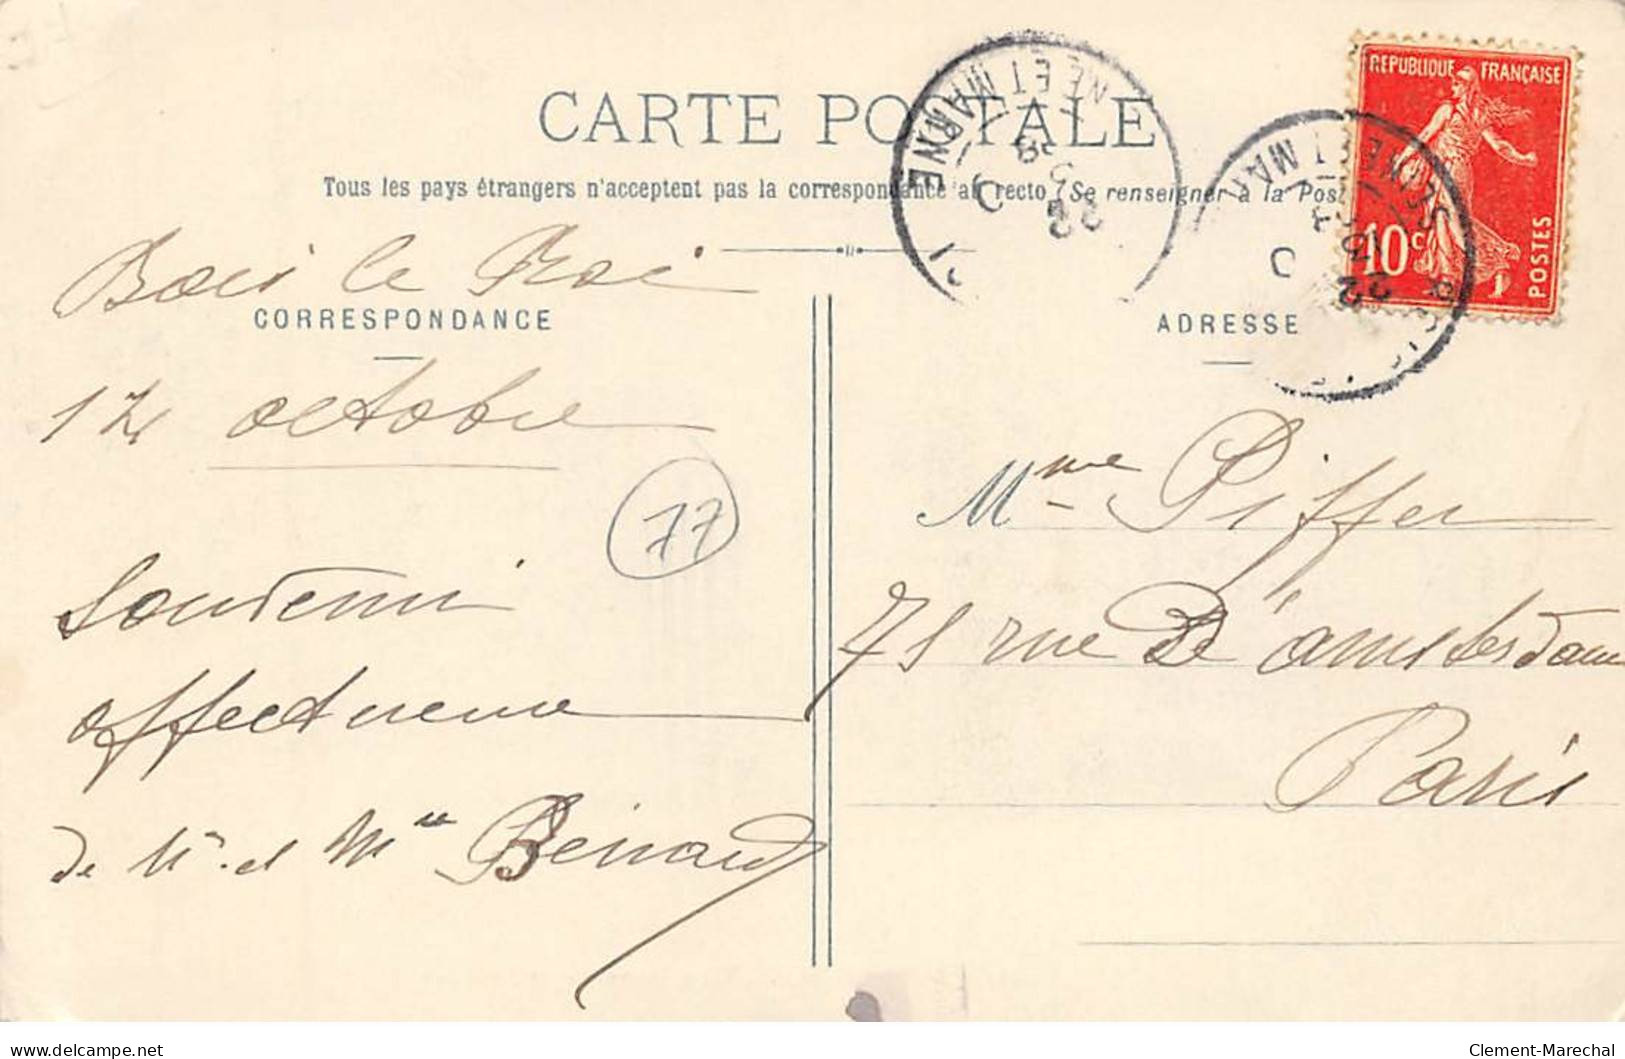 CARTE POSTALE
Tous les pays étrangers n'acceptent pas la correspondance au recto (Se renseigner à la Pos
REPUBLIQUE FRANÇAISE
10c
POSTES
NE ET MARNE
SEINE ET MAR
22
CORRESPONDANCE
Bois le Roi
octobre
77
Souvenir
affectueux
de Mr et Mme Beinard
ADRESSE
Mme Piffer
75 rue D'amsterdam
Paris
delcampe.net
Clement-Marechal